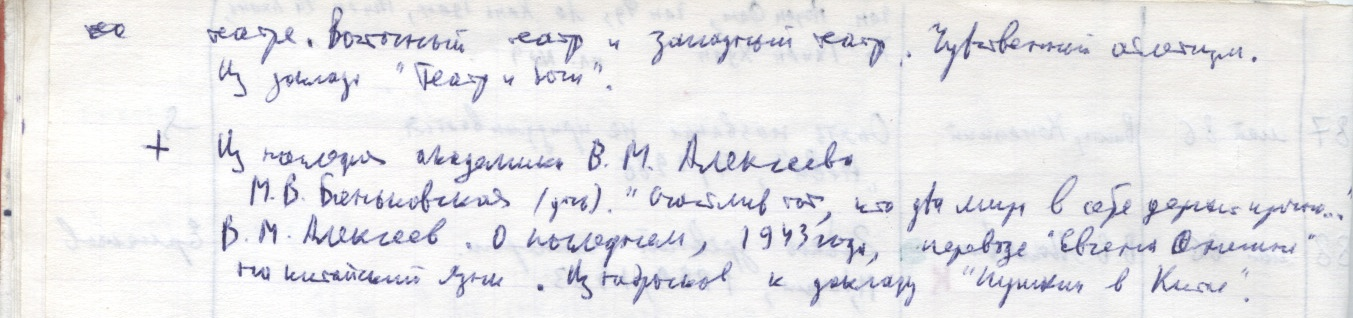 театре. Восточный театр и западный театр. Чувственный аскетизм.
Из доклада "Театр и йоги".
+ Из наследия академика В. М. Алексеева
М. В. Баньковская (дочь). "Счастлив тот, кто два мира в себе держит прочно..."
В. М. Алексеев. О последнем, 1943 года, переводе "Евгения Онегина"
на китайский язык. Из набросков к докладу "Пушкин в Китае".